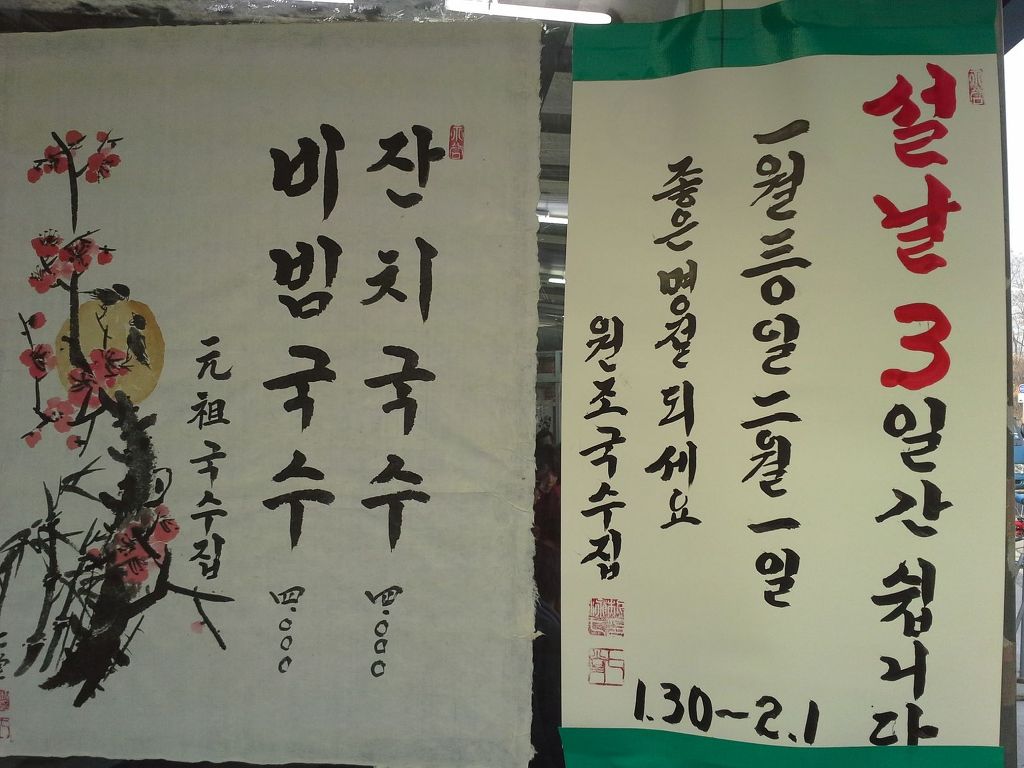 설날 3일간 쉽니다
一월 三〇일 二월 一일
좋은 명절 되세요
원조국수집
1.30~2.1
잔치국수 四.000
비빔국수 四.000
元祖국수집